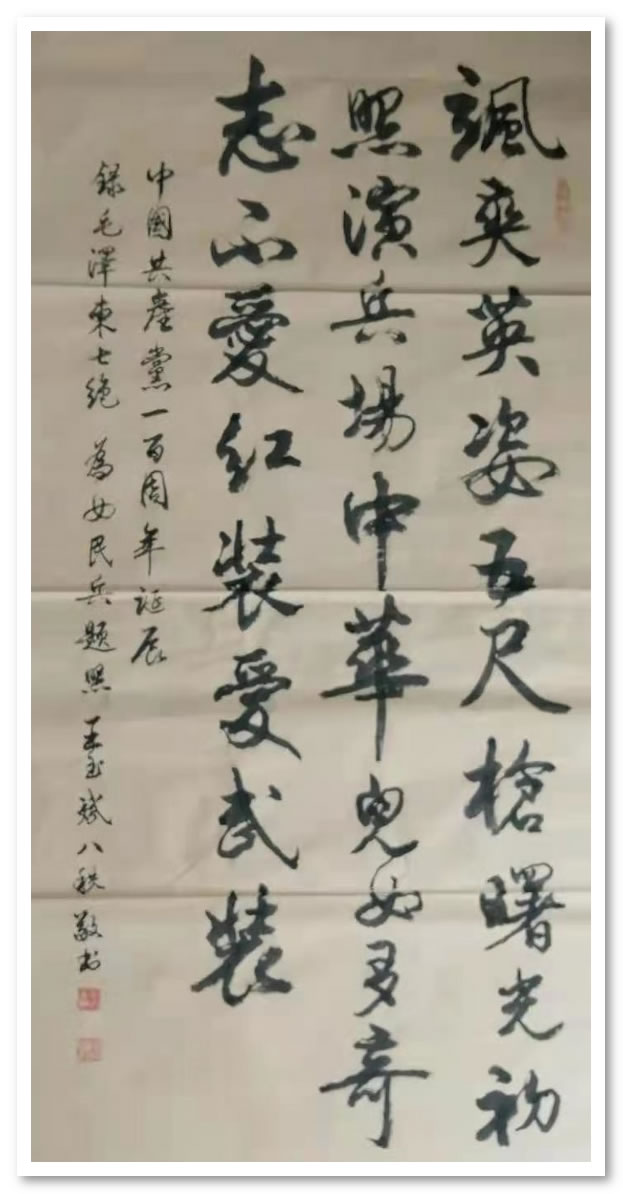 颯爽英姿五尺槍曙光初
照演兵場中華兒女多奇
志不愛紅裝愛武裝
中國共產黨一百周年誕辰
錄毛澤東七絕 為女民兵題照 王玉斌八秩敬書